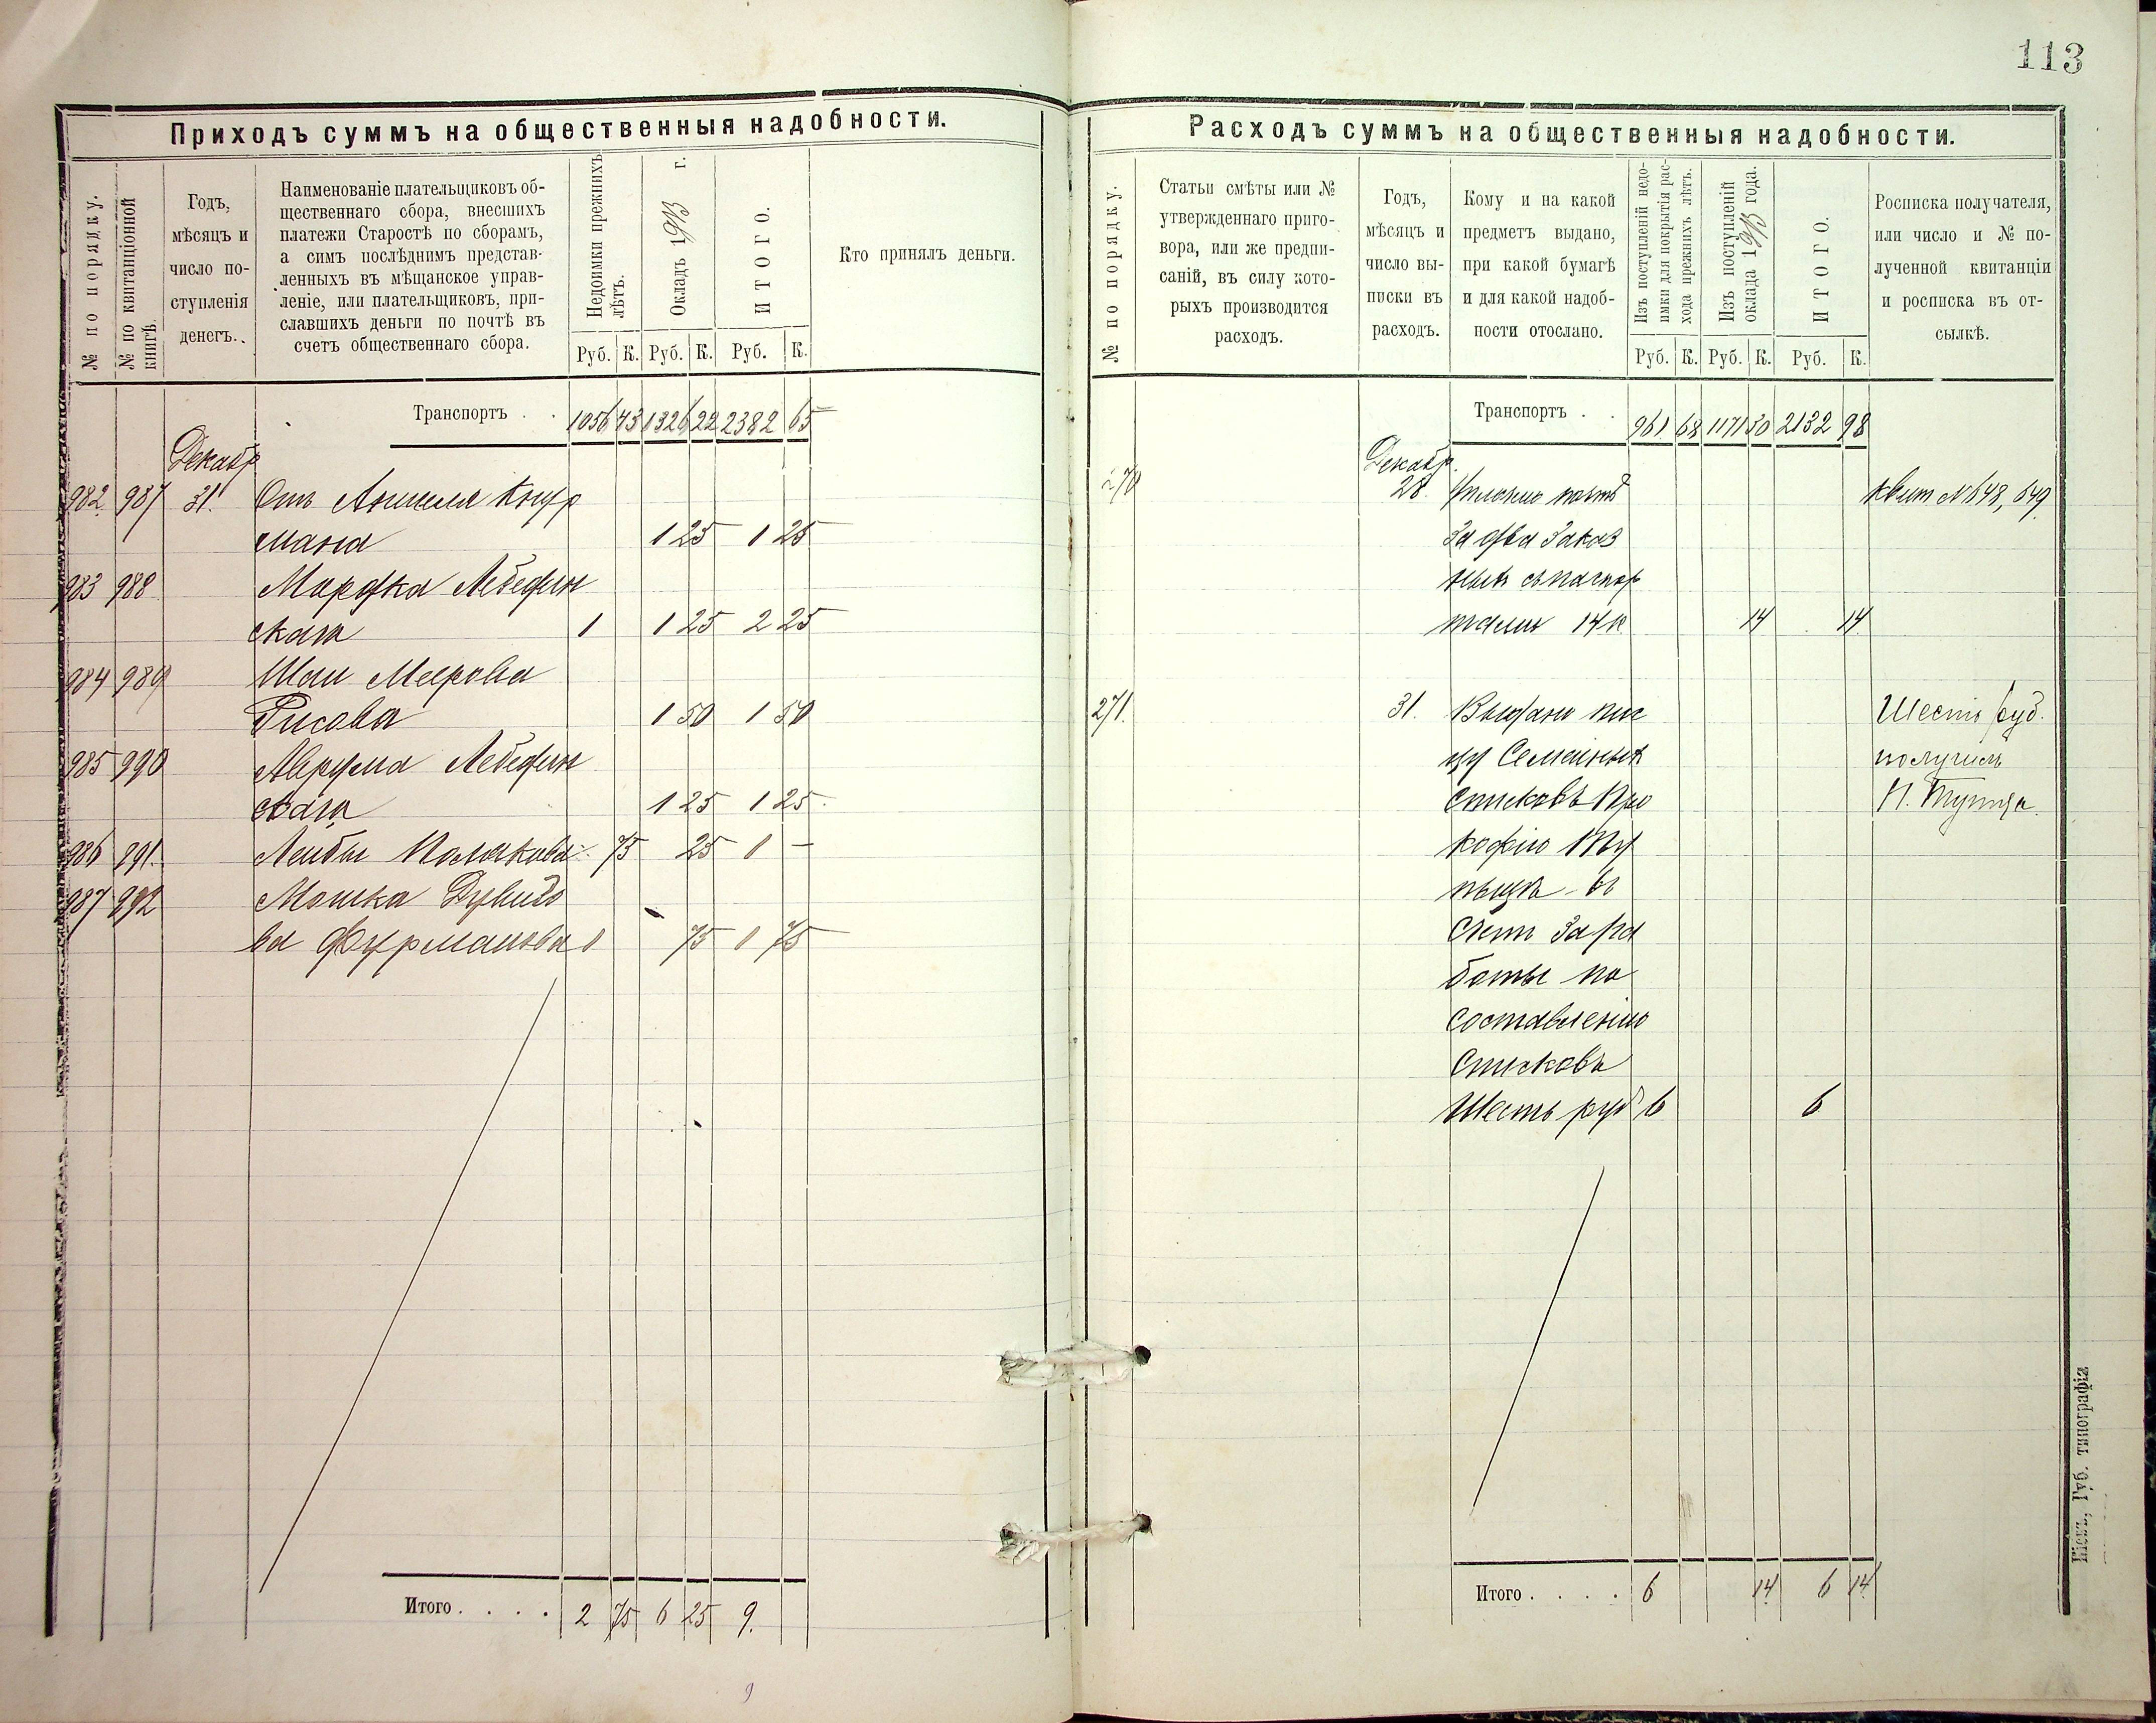 113
Приходъ суммъ на общественныя надобности.
№ по порядку.
№ по квитанціонной
книгѣ.
Годъ,
мѣсяцъ и
число по-
ступленія
денегъ.
Наименованіе плательщиковъ об-
щественнаго сбора, внесшихъ
платежи Старостѣ по сборамъ,
а симъ послѣднимъ представ-
ленныхъ въ мѣщанское управ-
леніе, или плательщиковъ, при-
славшихъ деньги по почтѣ въ
счетъ общественнаго сбора.
Недоимки прежнихъ
лѣтъ.
Окладъ 1913 г.
ИТОГО.
Кто принялъ деньги.
Руб. К. Руб. К. Руб. К.
Транспортъ . . 1056 43 1326 22 2382 65
Декабр
982 987 31. Отъ
мана 1 25 1 25
983 988 Мордка Лебедин
скаго 1 1 25 2 25
984 989 Шаи Меерова
Рисова 1 50 1 50
985 990 Аврума Лебедин
скаго 1 25 1 25
986 991 Лейбы Полякова 75 25 1 —
987 992 Мошка Дувидо
ва Фурманова 1 75 1 75
Итого . . . . 2 75 6 25 9.
9
Расходъ суммъ на общественныя надобности.
№ по порядку.
Статьи смѣты или №
утвержденнаго приго-
вора, или же предпи-
саній, въ силу кото-
рыхъ производится
расходъ.
Годъ,
мѣсяцъ и
число вы-
писки въ
расходъ.
Кому и на какой
предметъ выдано,
при какой бумагѣ
и для какой надоб-
ности отослано.
Изъ поступленій недо-
имки для покрытія рас-
хода прежнихъ лѣтъ.
Изъ поступленій
оклада 1913 года.
ИТОГО.
Росписка получателя,
или число и № по-
лученной квитанціи
и росписка въ от-
сылкѣ.
Руб. К. Руб. К. Руб. К.
Транспортъ . . 961 68 1171 30 2132 98
Декабр.
270 28. почтѣ квит № 648, 649
за два заказ
ныхъ съ паспор
тами 14 к 14 14
271. 31. Выдано пис Шесть руб.
цу Семейныхъ получилъ
списковъ Про П.
кофію
въ
счетъ зара
боты по
составленію
списковъ
Шесть руб 6 6
Итого . . . . 6 14 6 14
Кіевъ, Губ. типографія